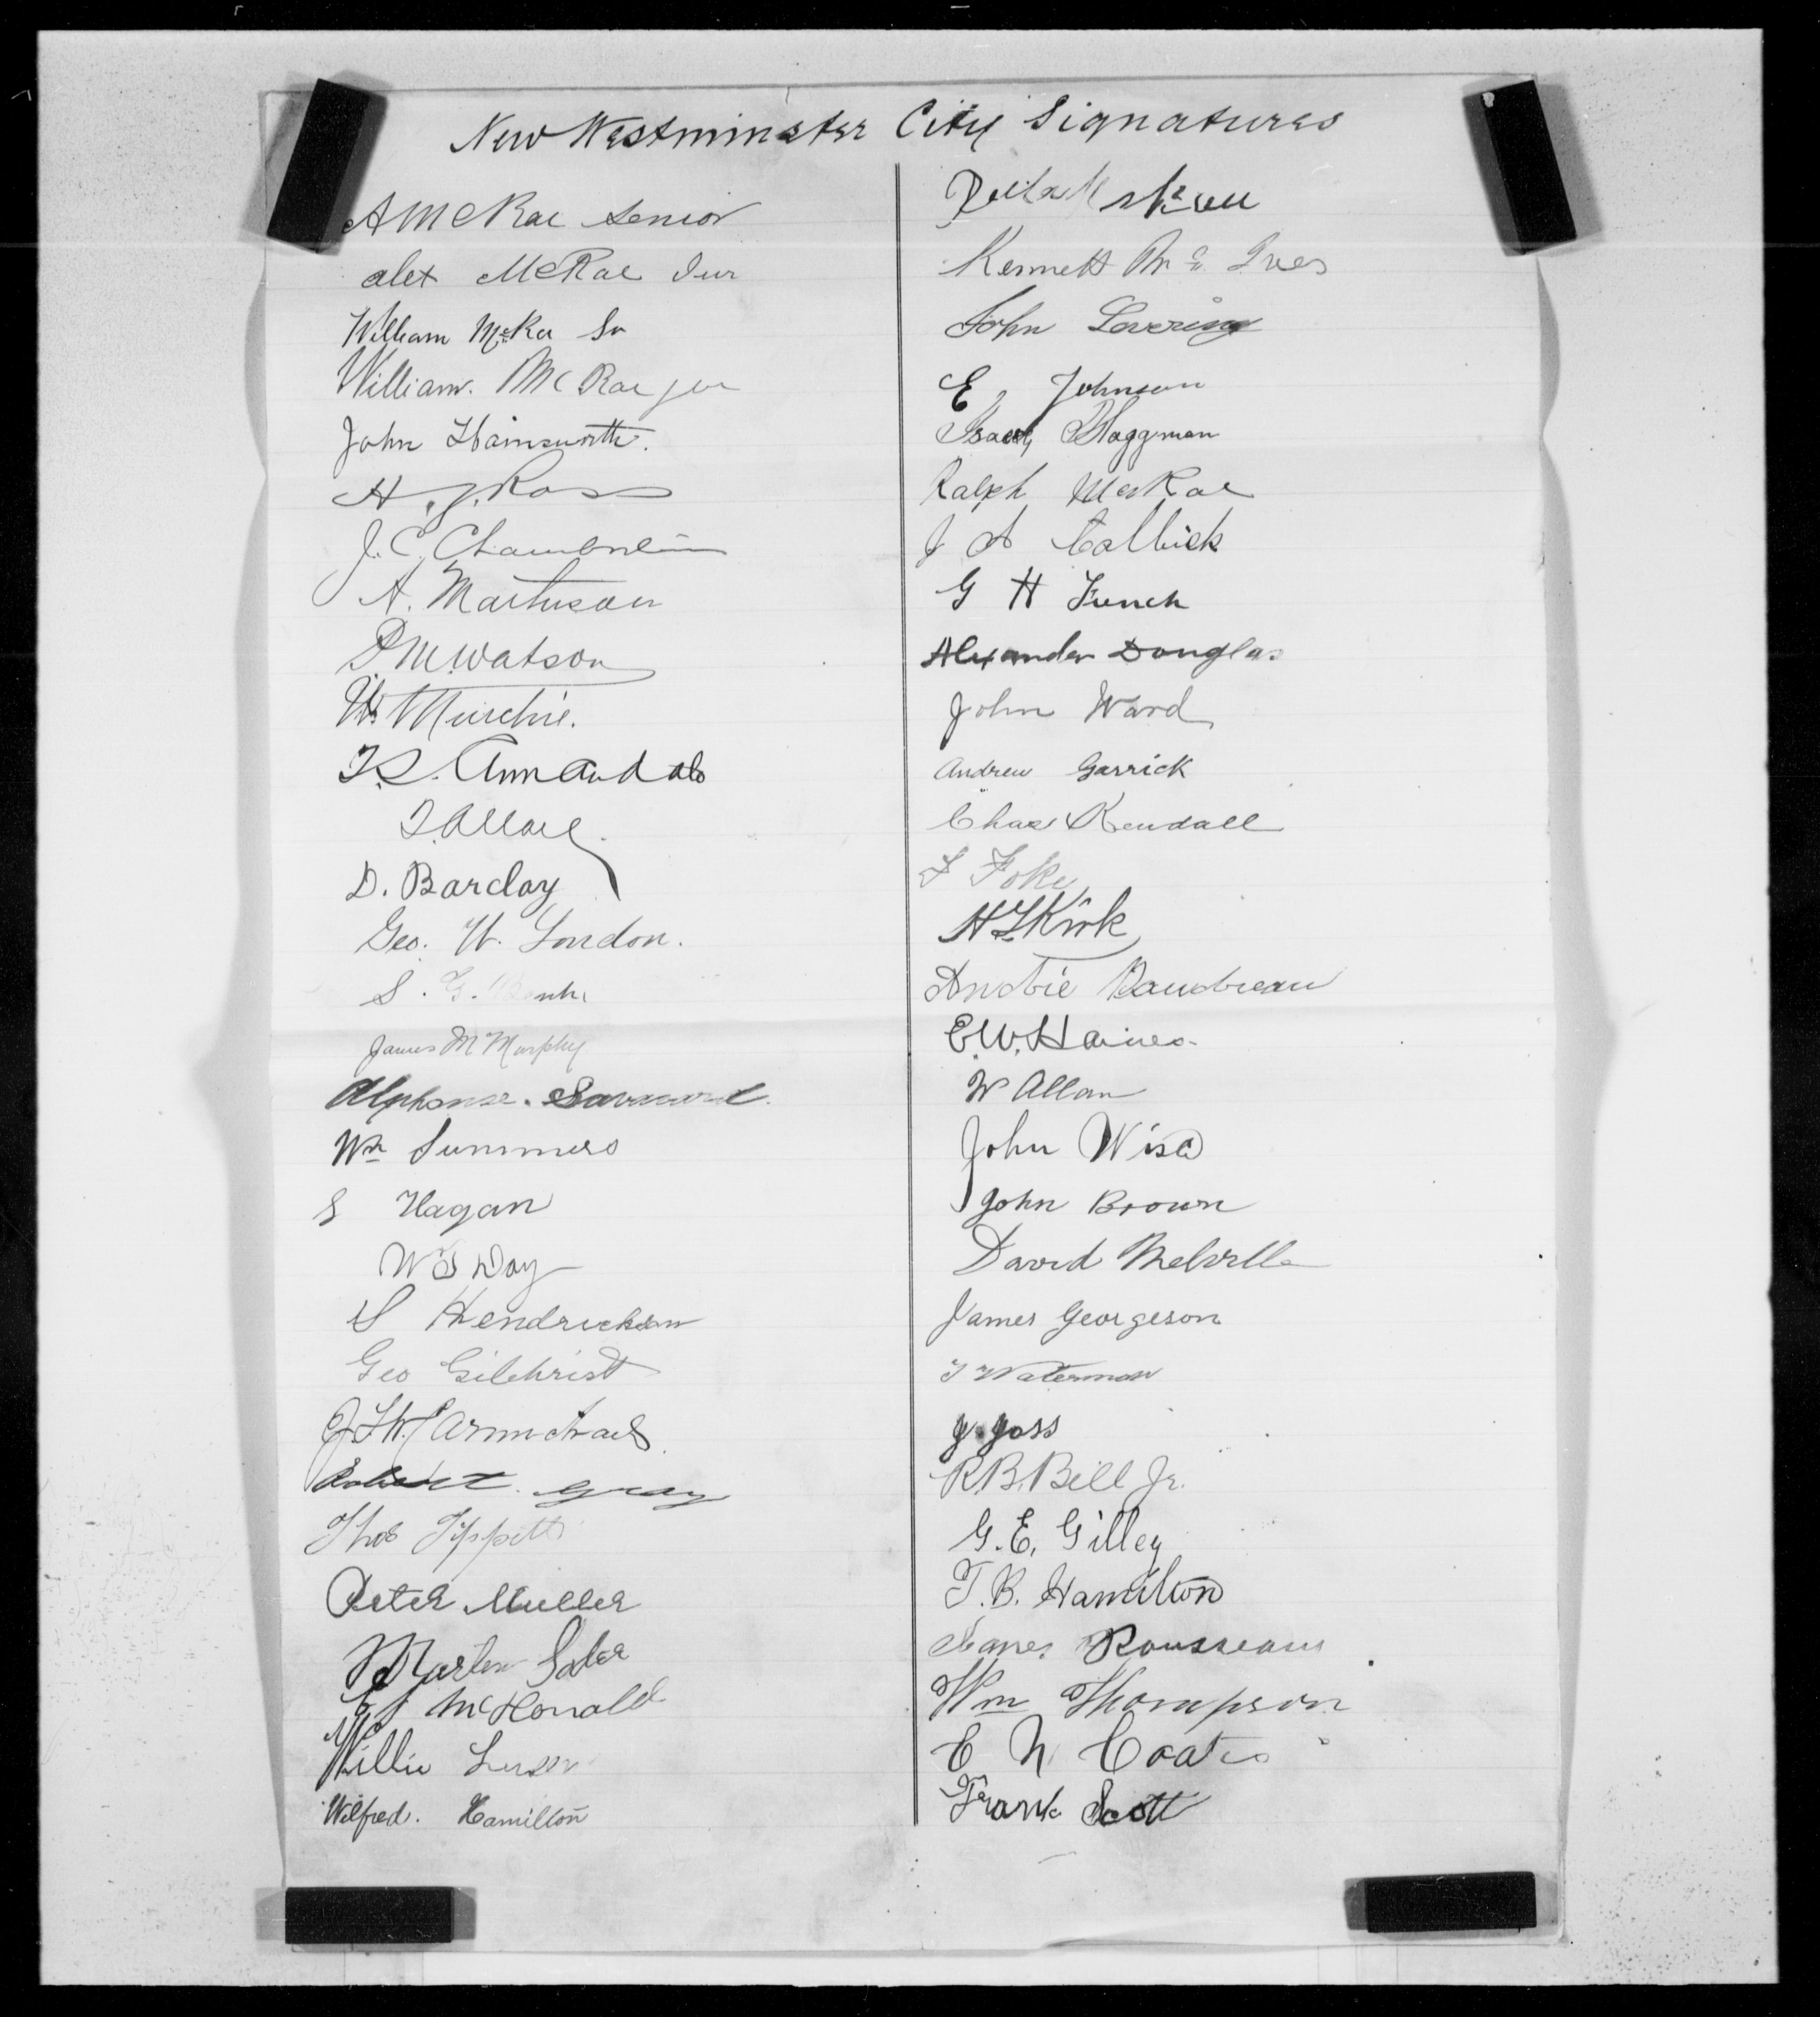 New Westminster City Signatures
A McRae Senior
Alex McRae Jur
William McRae Sr
William McRae jur
John Hainsworth.
H. J. Ross
J. C. Chamberlin
A. Mathison
P. M. Watson
W. Murchie.
T. S. Annandale
D. Barclay
Geo. W. London.
S. G.
James M Murphy
Alphonse. Savard.
Wm Summers
S Hagan
W Day
S Hendrickson
Geo Gilchrist
Robert Gray
Thos Tippett
Peter Muller
Martin
McDonald
Willie
Wilfred. Hamilton
Kenneth
John Lovering
E, Johnson
Isaac Haggman
Ralph McRae
J A Calbick
G H French
Alexander Douglas
John Ward
Andrew Garrick
Chas Kendall
F Foke
H L Kirk
Gaudreau
E. W. Haines
W Allan
John Wise
John Brown
David Melville
James Georgeson
T Waterman
J. Joss
R. B. Bell Jr.
G. E. Gilley
T. B. Hamilton
Rousseau
Wm Thompson
E N Coates
Frank Scott